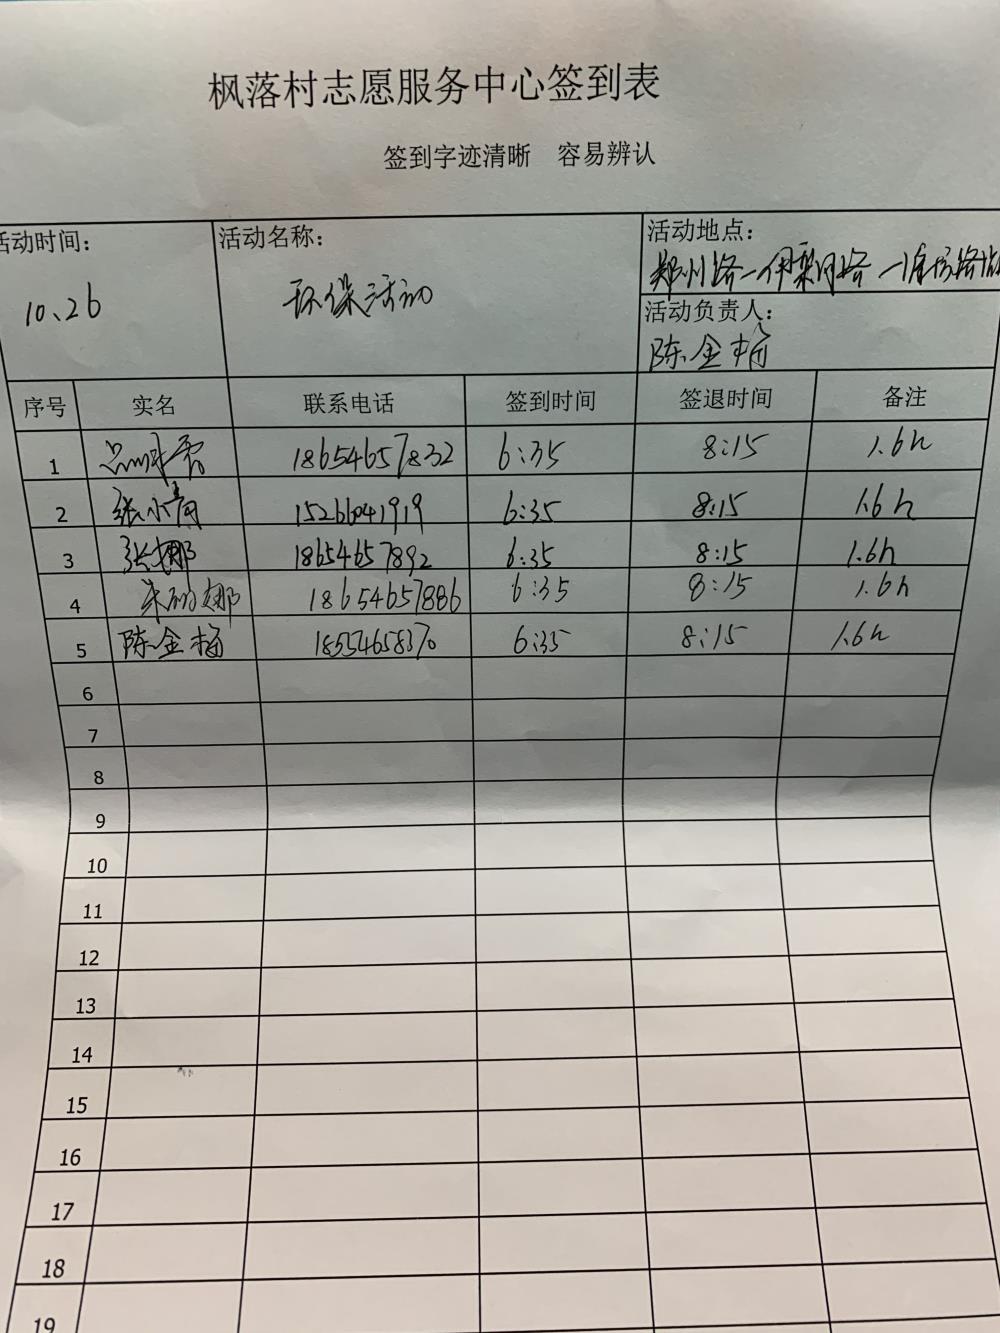 枫落村志愿服务中心签到表
签到字迹清晰 容易辨认
活动时间： 活动名称： 活动地点：
10、26 环保活动 郑州路一伊犁河路一潍坊路
活动负责人：
陈金梅
序号 实名 联系电话 签到时间 签退时间 备注
1 18654657832 6:35 8:15 1.6h
2 张小青 15266041919 6:35 8:15 1.6h
3 张娜 18654657892 6:35 8:15 1.6h
4 朱娜 18654657886 6:35 8:15 1.6h
5 陈金梅 18554658370 6:35 8:15 1.6h
6
7
8
9
10
11
12
13
14
15
16
17
18
19